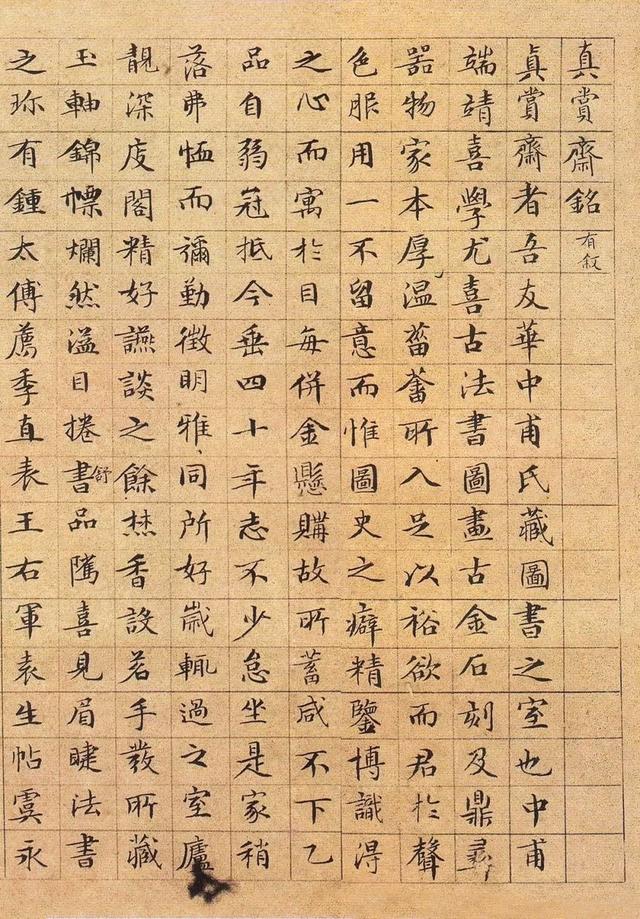 真賞齋銘有叙
真賞齋者吾友華中甫氏藏圖書之室也中甫
端靖喜學尤喜古法書圖畫古金石刻及鼎彞
器物家本厚溫菑畬所入足以裕欲而君於聲
色服用一不留意而惟圖史之癖精鑒博識得
之心而寓於目每併金懸購故所蓄咸不下乙
品自弱冠抵今垂四十年志不少怠坐是家稍
落弗恤而彌勤徴明雅同所好歲輒過之室廬
靚深庋閣精好讌談之餘焚香設茗手發所藏
玉軸錦幖爛然溢目捲舒品隲喜見眉睫法書
之珎有鍾太傅薦季直表王右軍袁生帖虞永